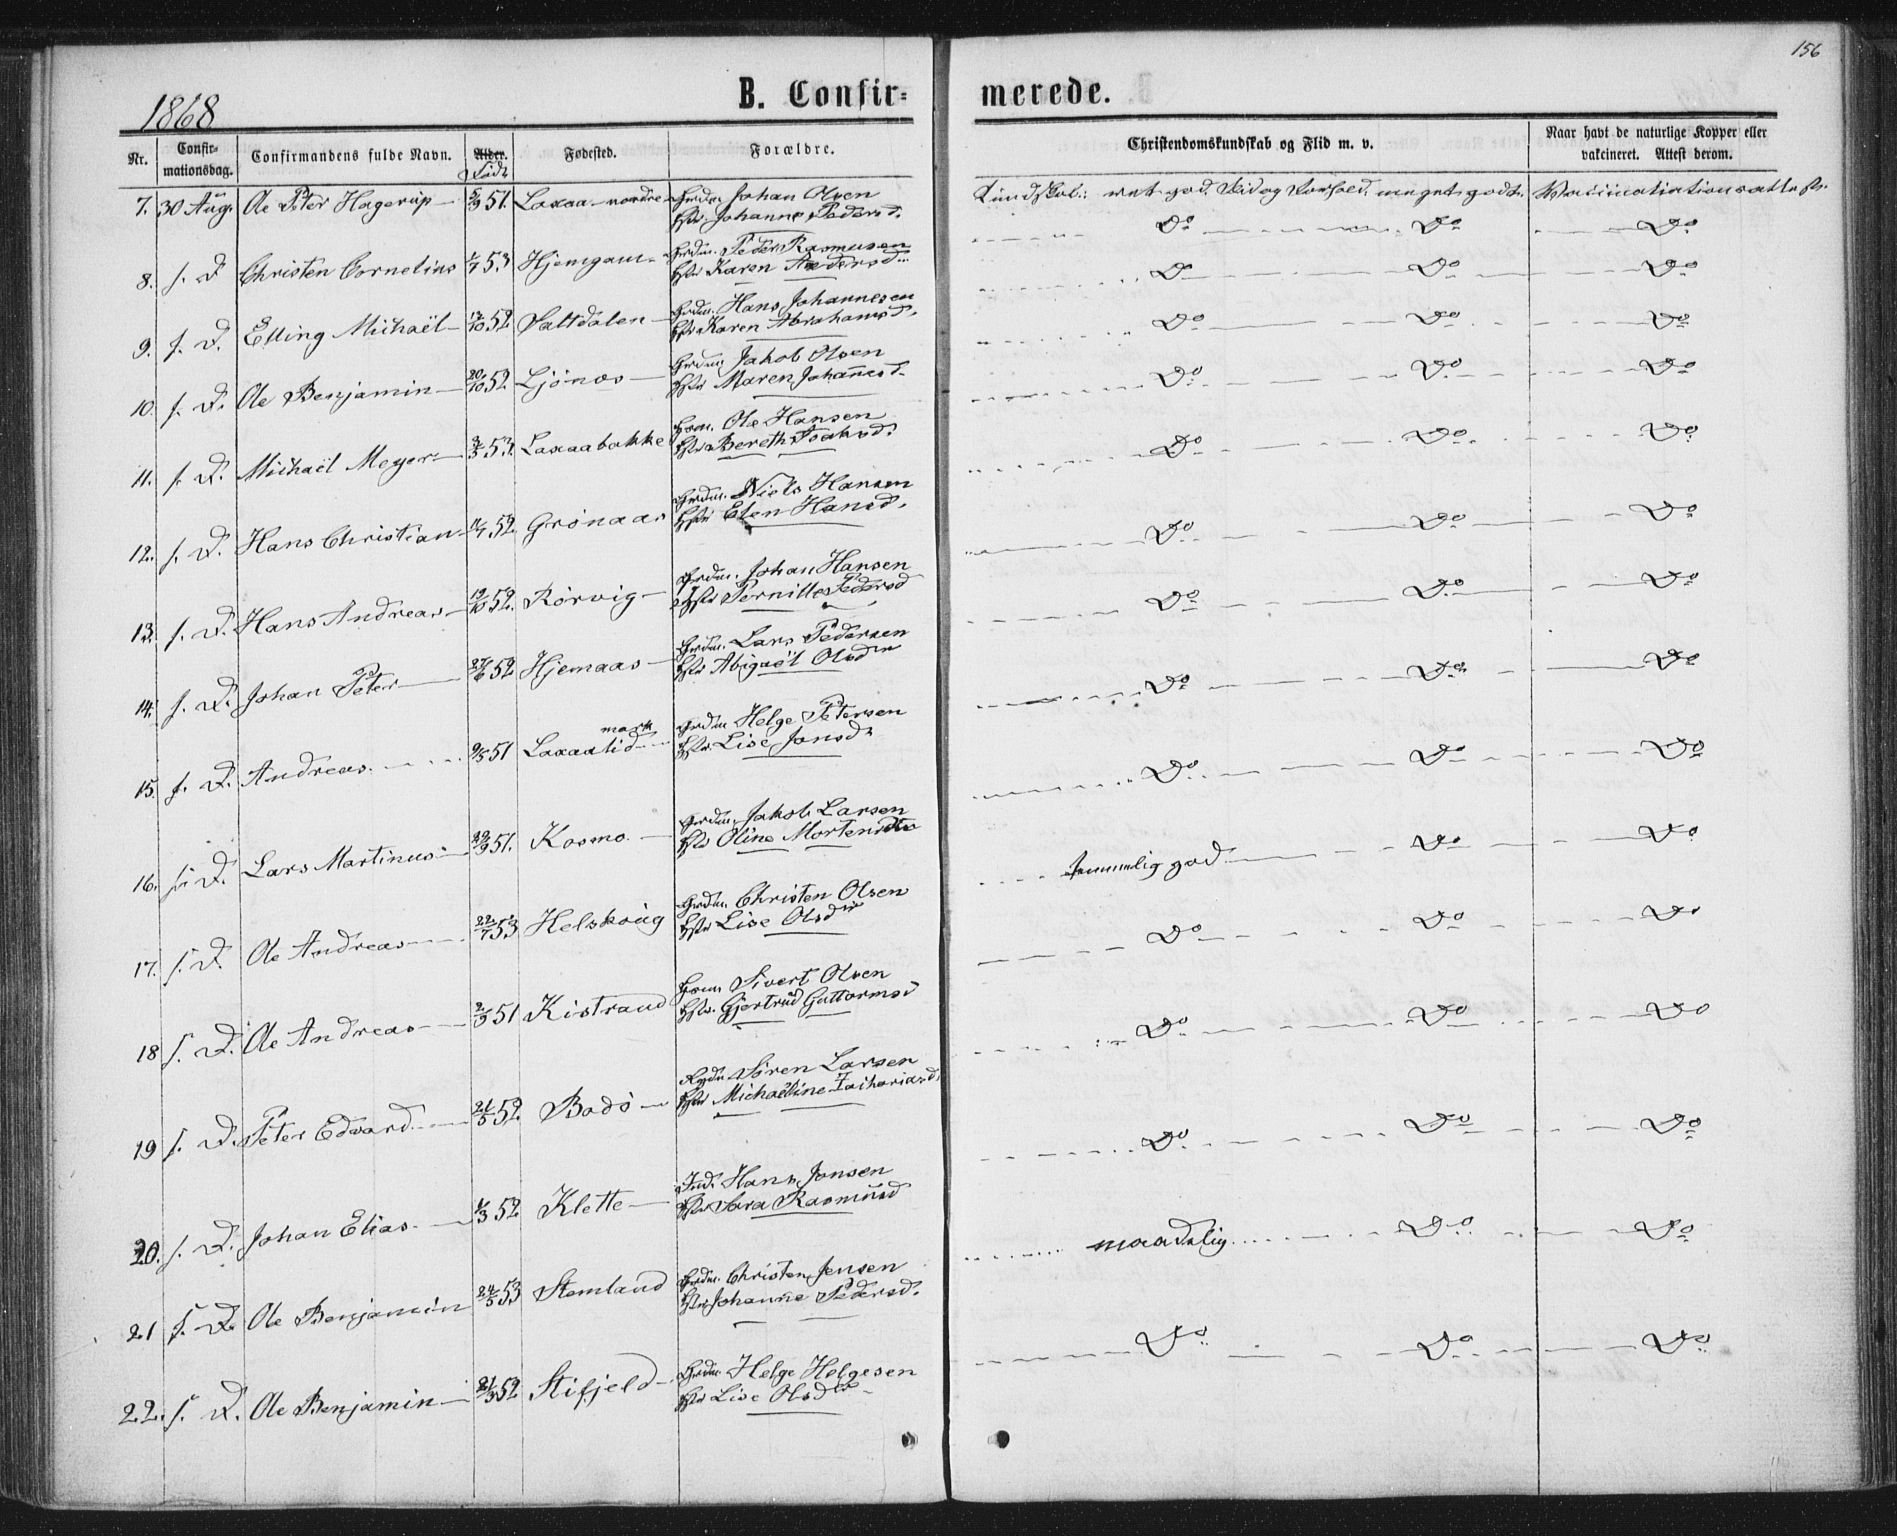 156
1868
B. Confir-
merede.
Nr. Confirmationsdag. Confirmandens fulde Navn. Alder. Födt Fødested. Forældre. Christendomskundskab og Flid m. v. Naar havt de naturlige Kopper eller vakcineret. Attest derom.
7. 30 Aug. Ole Peter Hagerup 5/9 51. Laxaa nordre Grdm. Johan Olsen Kundskab: met god. Flid og Forhold meget godt. Vaccinationsattest.
Hstr Johanne Pedersd.
Do Do Do
8. s. D Christen Cornelius 1/7 53 Hjemgam Grdm. Peder Rasmusen
Hstr Karen Andersd. Do Do Do
9. s. D. Elling Michaël 12/10 52 Saltdalen Grdm. Hans Johannesen
Hstr Karen Abrahamsd. Do Do Do
10. s. D. Ole Benjamin 20/10 52 Ljönæs Grdm. Jakob Olsen
Hstr Maren Johannesd. Do Do Do
11. s. D. Michaël Meyer 3/3 53. Laxaabakke Hsm. Ole Hansen
Hstr Bereth Isaksd. Do Do Do
12. s. D. Hans Christian 11/7 52. Grönaas Grdm. Niels Hansen
Hstr Elen Hansd. Do Do Do
13. s. D. Hans Andreas 19/10 52. Rörvig Grdm. Johan Hansen
Hstr Pernille Pedersd Do Do Do
14. s. D. Johan Peter 27/6 52 Hjemaas Grdm. Lars Pedersen
Hstr Abigaël Olsdr Do Do Do
15. s. D. Andreas 9/5 51 Laxaalid mark Grdm Helge Petersen
Hstr. Lise Jonsdr Do Do Do
16. s. D. Lars Martinus 29/9 51. Kosmo Grdm. Jakob Larsen
Hstr Oline Mortensdtr temmelig god Do Do
17. s. D. Ole Andreas 22/7 53 Helskoug Grdm. Christen Olsen
Hstr Lise Olsdtr Do Do Do
18 s. D. Ole Andreas 2/9 51 Kistrand Hsm. Sivert Olsen
Hstr. Gjertrud Guttormsd Do Do Do
19 s. D. Peter Edvard 21/5 52 Bodö Sören Larsen
Hstr Michaëline Zachariasd. Do Do Do
20. s. D. Johan Elias 1/3 52 Klette Ind. Hans Jonsen
Hstr Sara Rasmusd maadelig Do Do
21 s. D. Ole Benjamin 24/5 53 Stemland Grdm. Christen Jensen
Hstr Johanne Pedersd. Do Do Do
22. s. D. Ole Benjamin 21/3 52 Stifjeld Grdm. Helge Helgesen
Hstr Lise Olsdtr